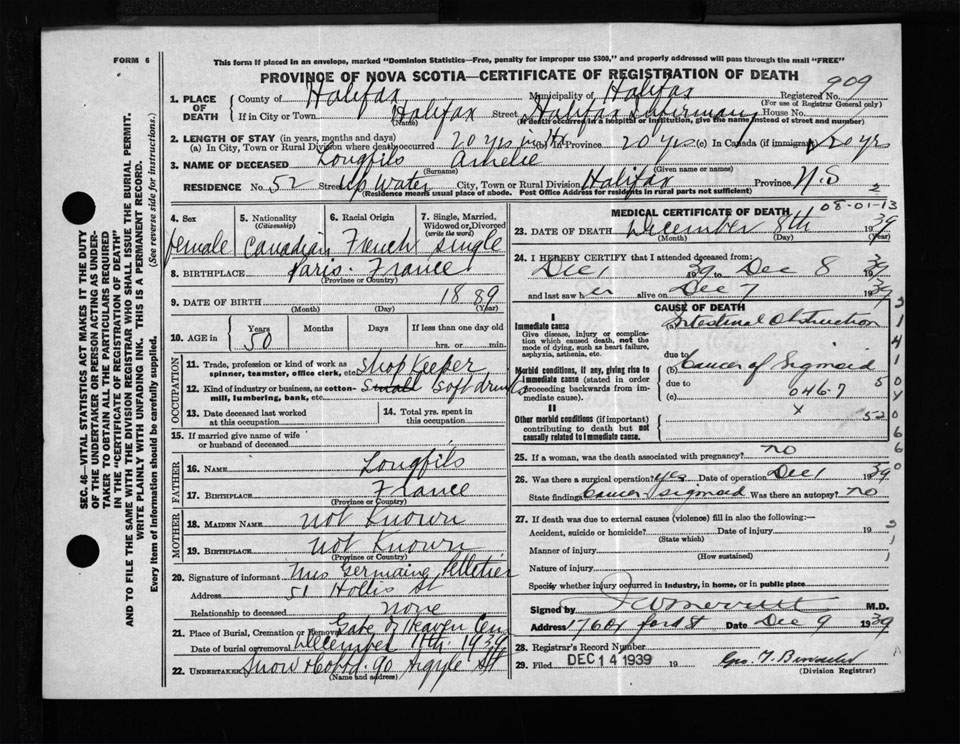 FORM 6
This form if placed in an envelope, marked "Dominion Statistics—Free, penalty for improper use $300," and properly addressed will pass through the mail "FREE"
PROVINCE OF NOVA SCOTIA—CERTIFICATE OF REGISTRATION OF DEATH
909
1. PLACE OF DEATH
County of Halifax Municipality of Halifax Registered No.
(For use of Registrar General only)
If in City or Town Halifax Street Halifax Infirmary House No.
(Name) (If death occurred in a hospital or institution, give the name instead of street and number)
2. LENGTH OF STAY (in years, months and days)
(a) In City, Town or Rural Division where death occurred 20 yrs (b) In Province 20 yrs (c) In Canada (if immigrant) 20 yrs
3. NAME OF DECEASED Longfils Amelie
(Surname) (Given name or names)
RESIDENCE No. 52 Street Up Water City, Town or Rural Division Halifax Province N.S
(Residence means usual place of abode. Post Office Address for residents in rural parts not sufficient)
4. Sex
female
5. Nationality
(Citizenship)
Canadian
6. Racial Origin
French
7. Single, Married, Widowed or Divorced
(write the word)
single
8. BIRTHPLACE Paris. France
(Province or Country)
9. DATE OF BIRTH 1889
(Month) (Day) (Year)
10. AGE in Years Months Days If less than one day old
50 hrs. or min.
OCCUPATION
11. Trade, profession or kind of work as spinner, teamster, office clerk, etc. Shop Keeper
12. Kind of industry or business, as cotton-mill, lumbering, bank, etc. Soft drinks
13. Date deceased last worked at this occupation
14. Total yrs. spent in this occupation
15. If married give name of wife or husband of deceased
FATHER
16. NAME Longfils
17. BIRTHPLACE France
(Province or Country)
MOTHER
18. MAIDEN NAME not Known
19. BIRTHPLACE not Known
(Province or Country)
20. Signature of informant Mrs Germaine Pelletier
Address 51 Hollis St
Relationship to deceased none
21. Place of Burial, Cremation or Removal Gate of Heaven Cem
Date of burial or removal December 11th 1939
22. UNDERTAKER Snow & Co Ltd. 90 Argyle St
(Name and address)
MEDICAL CERTIFICATE OF DEATH
08-01-13
2
23. DATE OF DEATH December 8th 1939
(Month) (Day) (Year)
24. I HEREBY CERTIFY that I attended deceased from:
Dec 1 1939 to Dec 8 1939
and last saw her alive on Dec 7 1939
CAUSE OF DEATH
I
Immediate cause
Give disease, injury or complication which caused death, not the mode of dying, such as heart failure, asphyxia, asthenia, etc.
Intestinal Obstruction
due to
Morbid conditions, if any, giving rise to immediate cause (stated in order proceeding backwards from immediate cause).
(b) Cancer of Sigmoid
due to
(c) 046-7
x
II
Other morbid conditions (if important) contributing to death but not causally related to immediate cause.
25. If a woman, was the death associated with pregnancy? no
26. Was there a surgical operation? yes Date of operation Dec 1 1939
State findings Cancer sigmoid Was there an autopsy? no
27. If death was due to external causes (violence) fill in also the following:—
Accident, suicide or homicide? Date of injury 19
(State which)
Manner of injury
(How sustained)
Nature of injury
Specify whether injury occurred in industry, in home, or in public place
Signed by M.D.
Address 176 Date Dec 9 1939
28. Registrar's Record Number
29. Filed DEC 14 1939 19
(Division Registrar)
SEC. 46—VITAL STATISTICS ACT MAKES IT THE DUTY
OF THE UNDERTAKER OR PERSON ACTING AS UNDER-
TAKER TO OBTAIN ALL THE PARTICULARS REQUIRED
IN THE "CERTIFICATE OF REGISTRATION OF DEATH"
AND TO FILE THE SAME WITH THE DIVISION REGISTRAR WHO SHALL ISSUE THE BURIAL PERMIT.
WRITE PLAINLY WITH UNFADING INK. THIS IS A PERMANENT RECORD.
Every item of information should be carefully supplied. (See reverse side for instructions.)